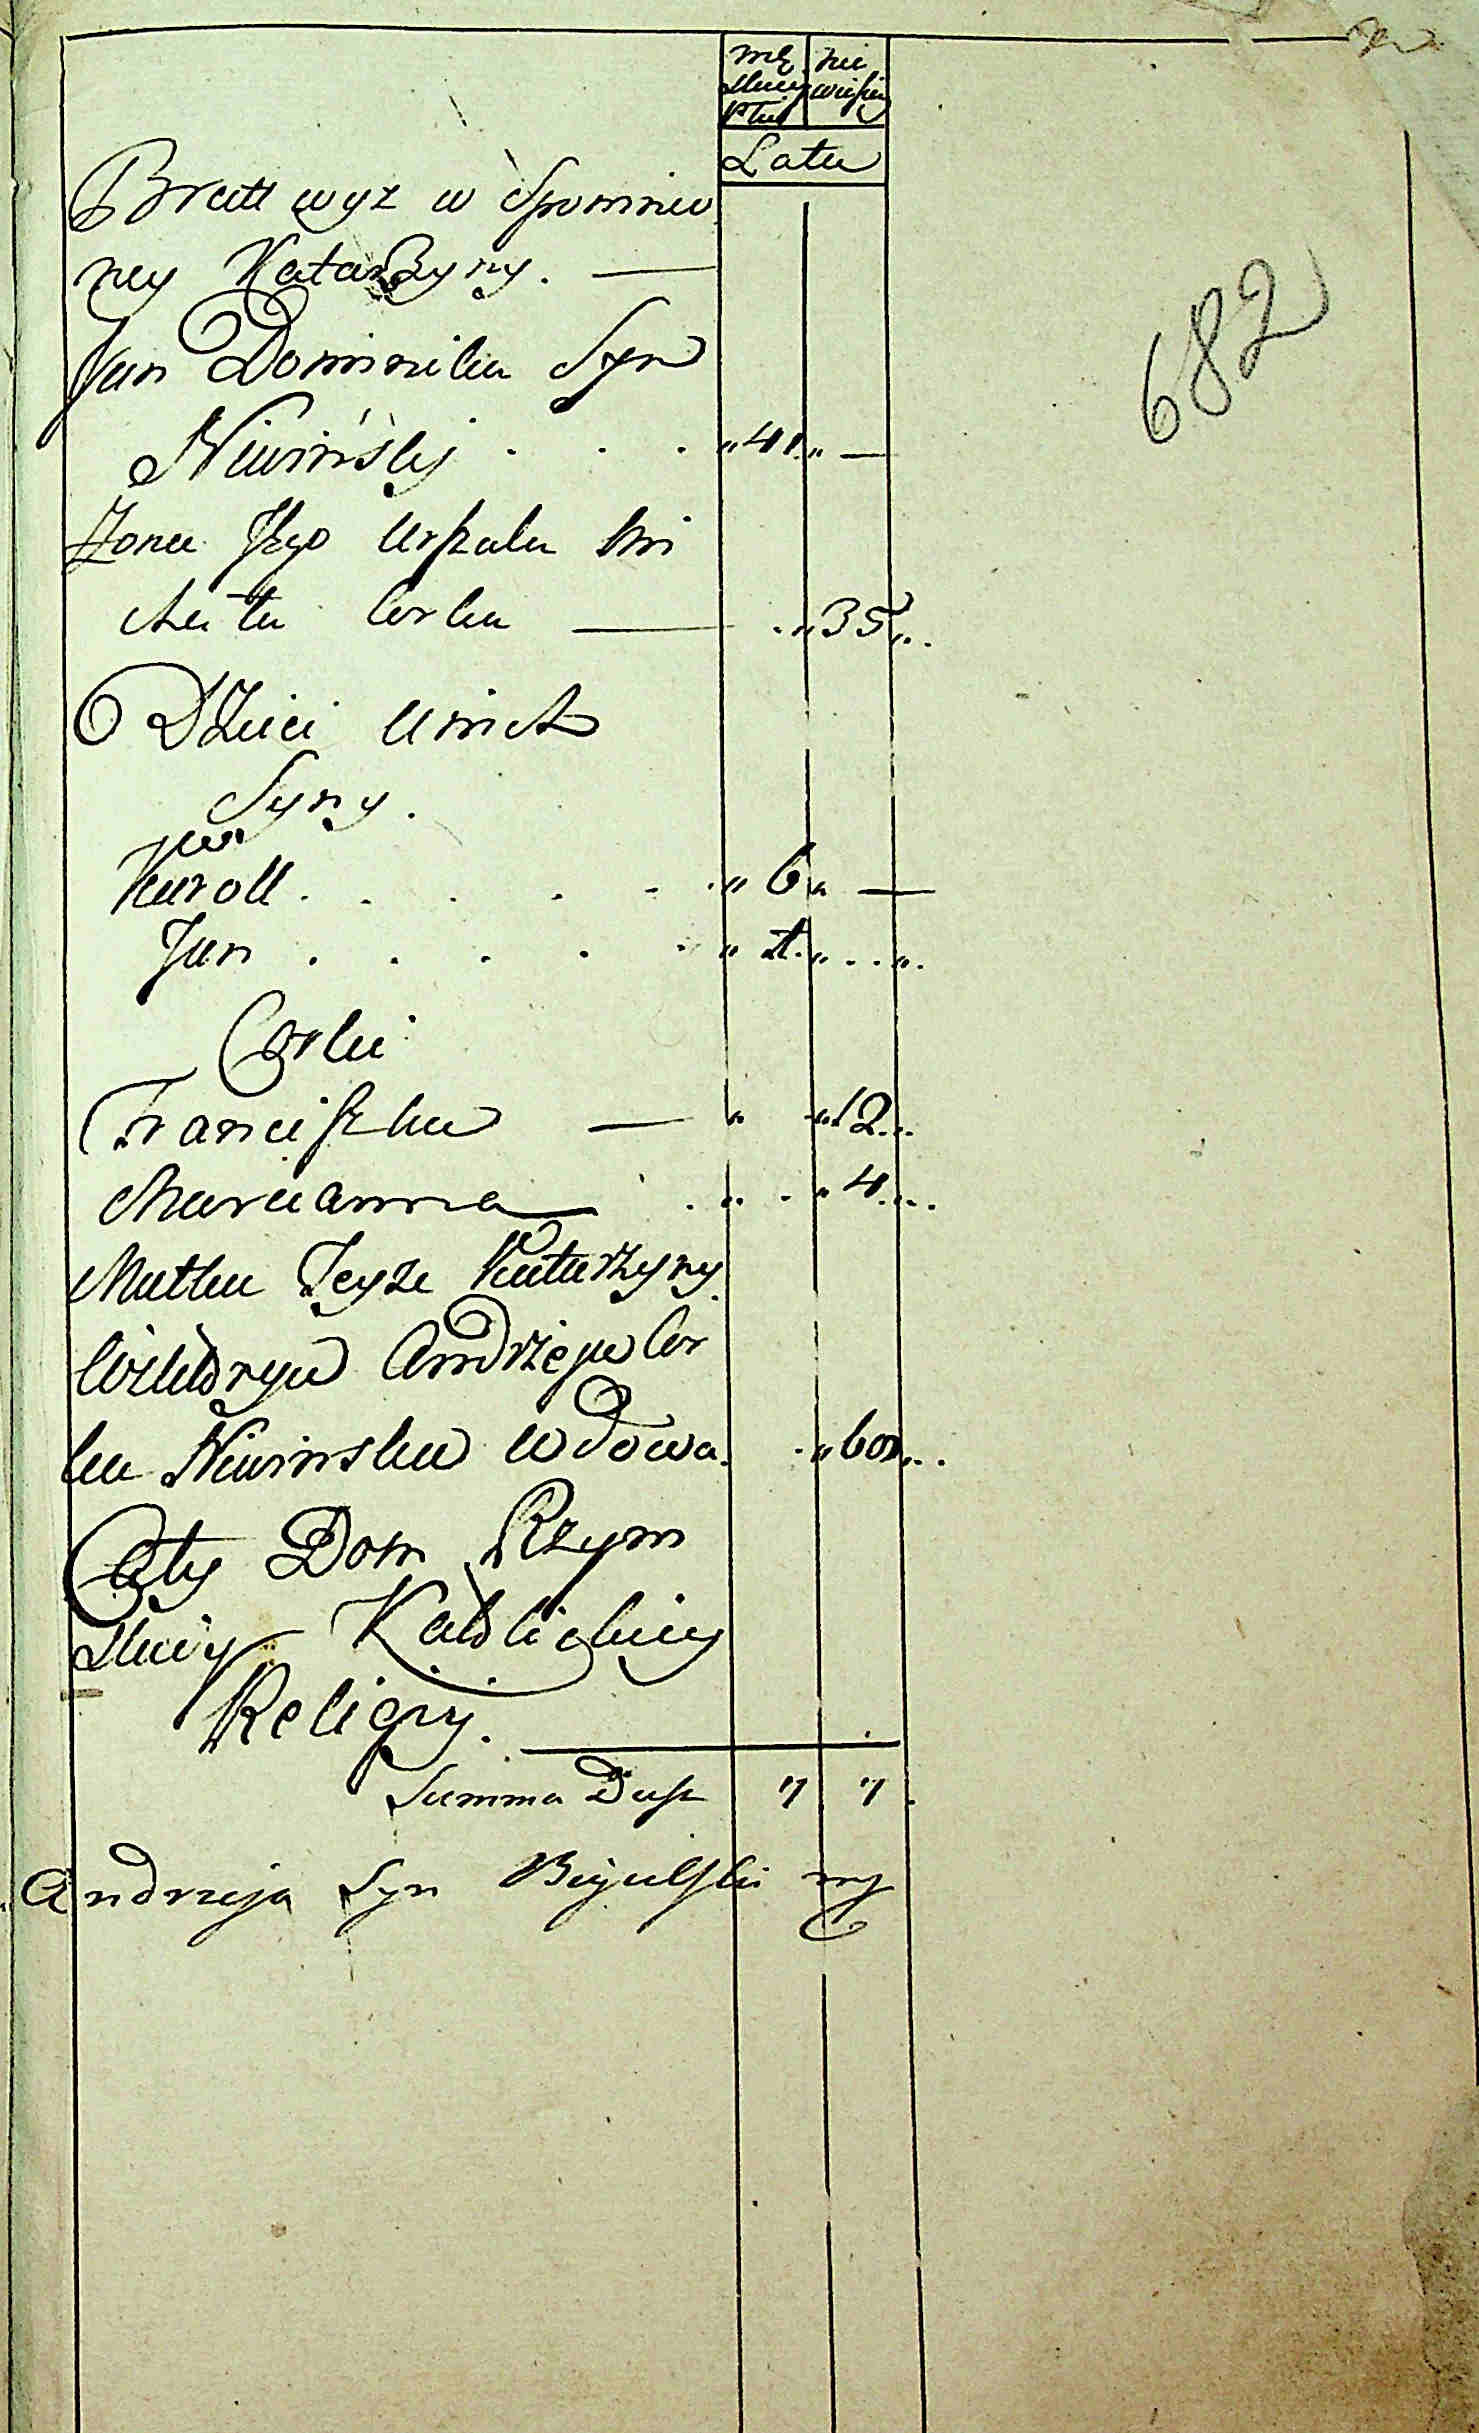 mę nie
skiey wieściey
Płci
Lata
Bratt wyz w spomnio
ney Katarzyny. —
682
Jan Dominika Syn
Niwiński . . . „ 41 „ —
Zona Jego Urszula Mi
chała Corka — „ 35 „
Dzieci unich
Syny.
Karoll . . . . „ 6 „ —
Jan . . . . . „ 1. „ . . „
Corki
Franciszka — „ „ 12 „
Marianna „ „ 4 „
Matka Teyze Katarzyny
Andrzeja Cor
ka Niwinska Wdowa. „ 60 „
Cały Dom Rzym
skiey Katolickiey
Religij.
Summa Dusz 7 7
Andrzeja Syn